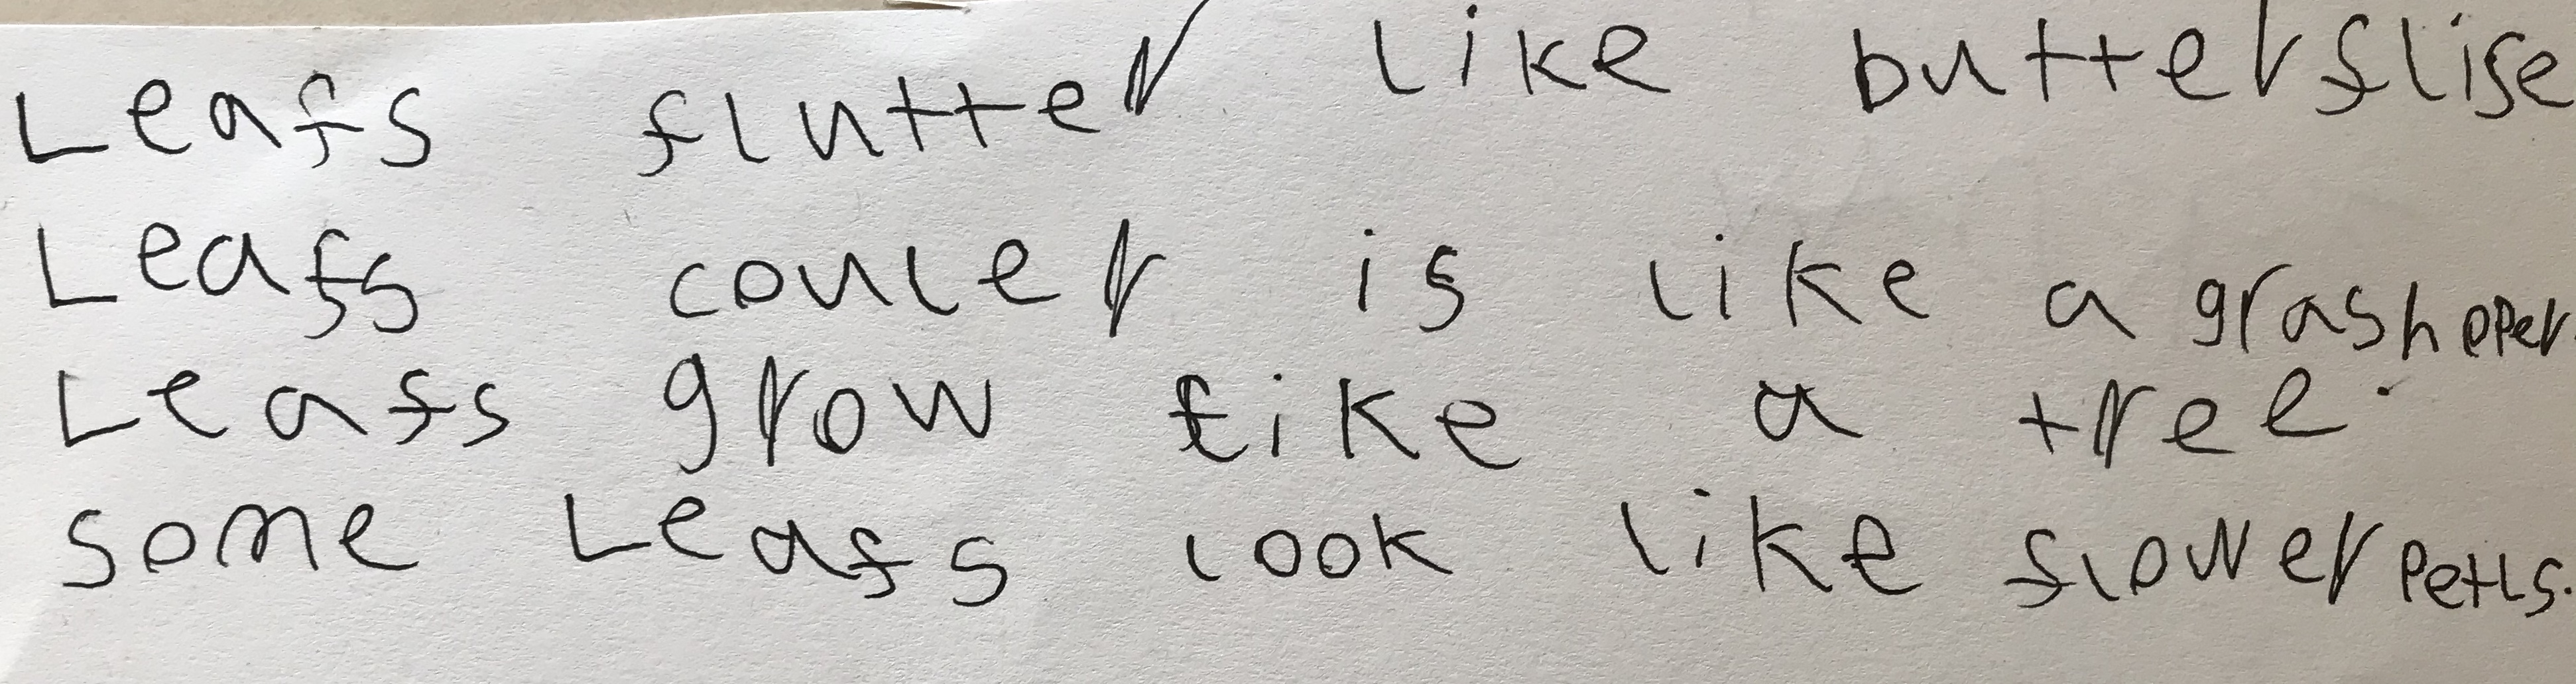 Leafs flutter like butterflise
Leafs couler is like a grashoper.
Leafs grow like a tree.
some Leafs look like flower Petls.